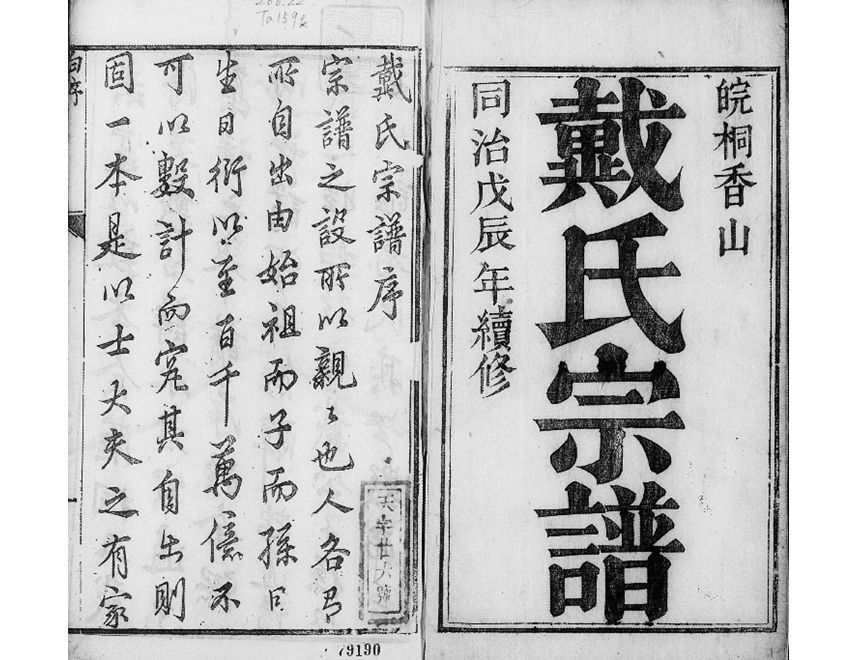 皖桐香山
戴氏宗譜
同治戊辰年續修
戴氏宗譜序
宗譜之設所以親〻也人各有
所自出由始祖而子而孫日
生日衍以至百千萬億不
可以數計而究其自出則
固一本是以士大夫之有家
天字廿六號
79190